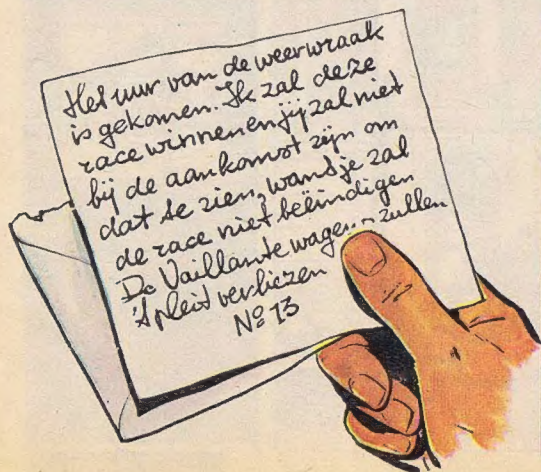 Het uur van de weerwraak
is gekomen. Ik zal deze
race winnen en jij zal niet
bij de aankomst zijn om
dat te zien, want je zal
de race niet beëindigen
De Vaillante wagens zullen
't pleit verliezen
Nº 13